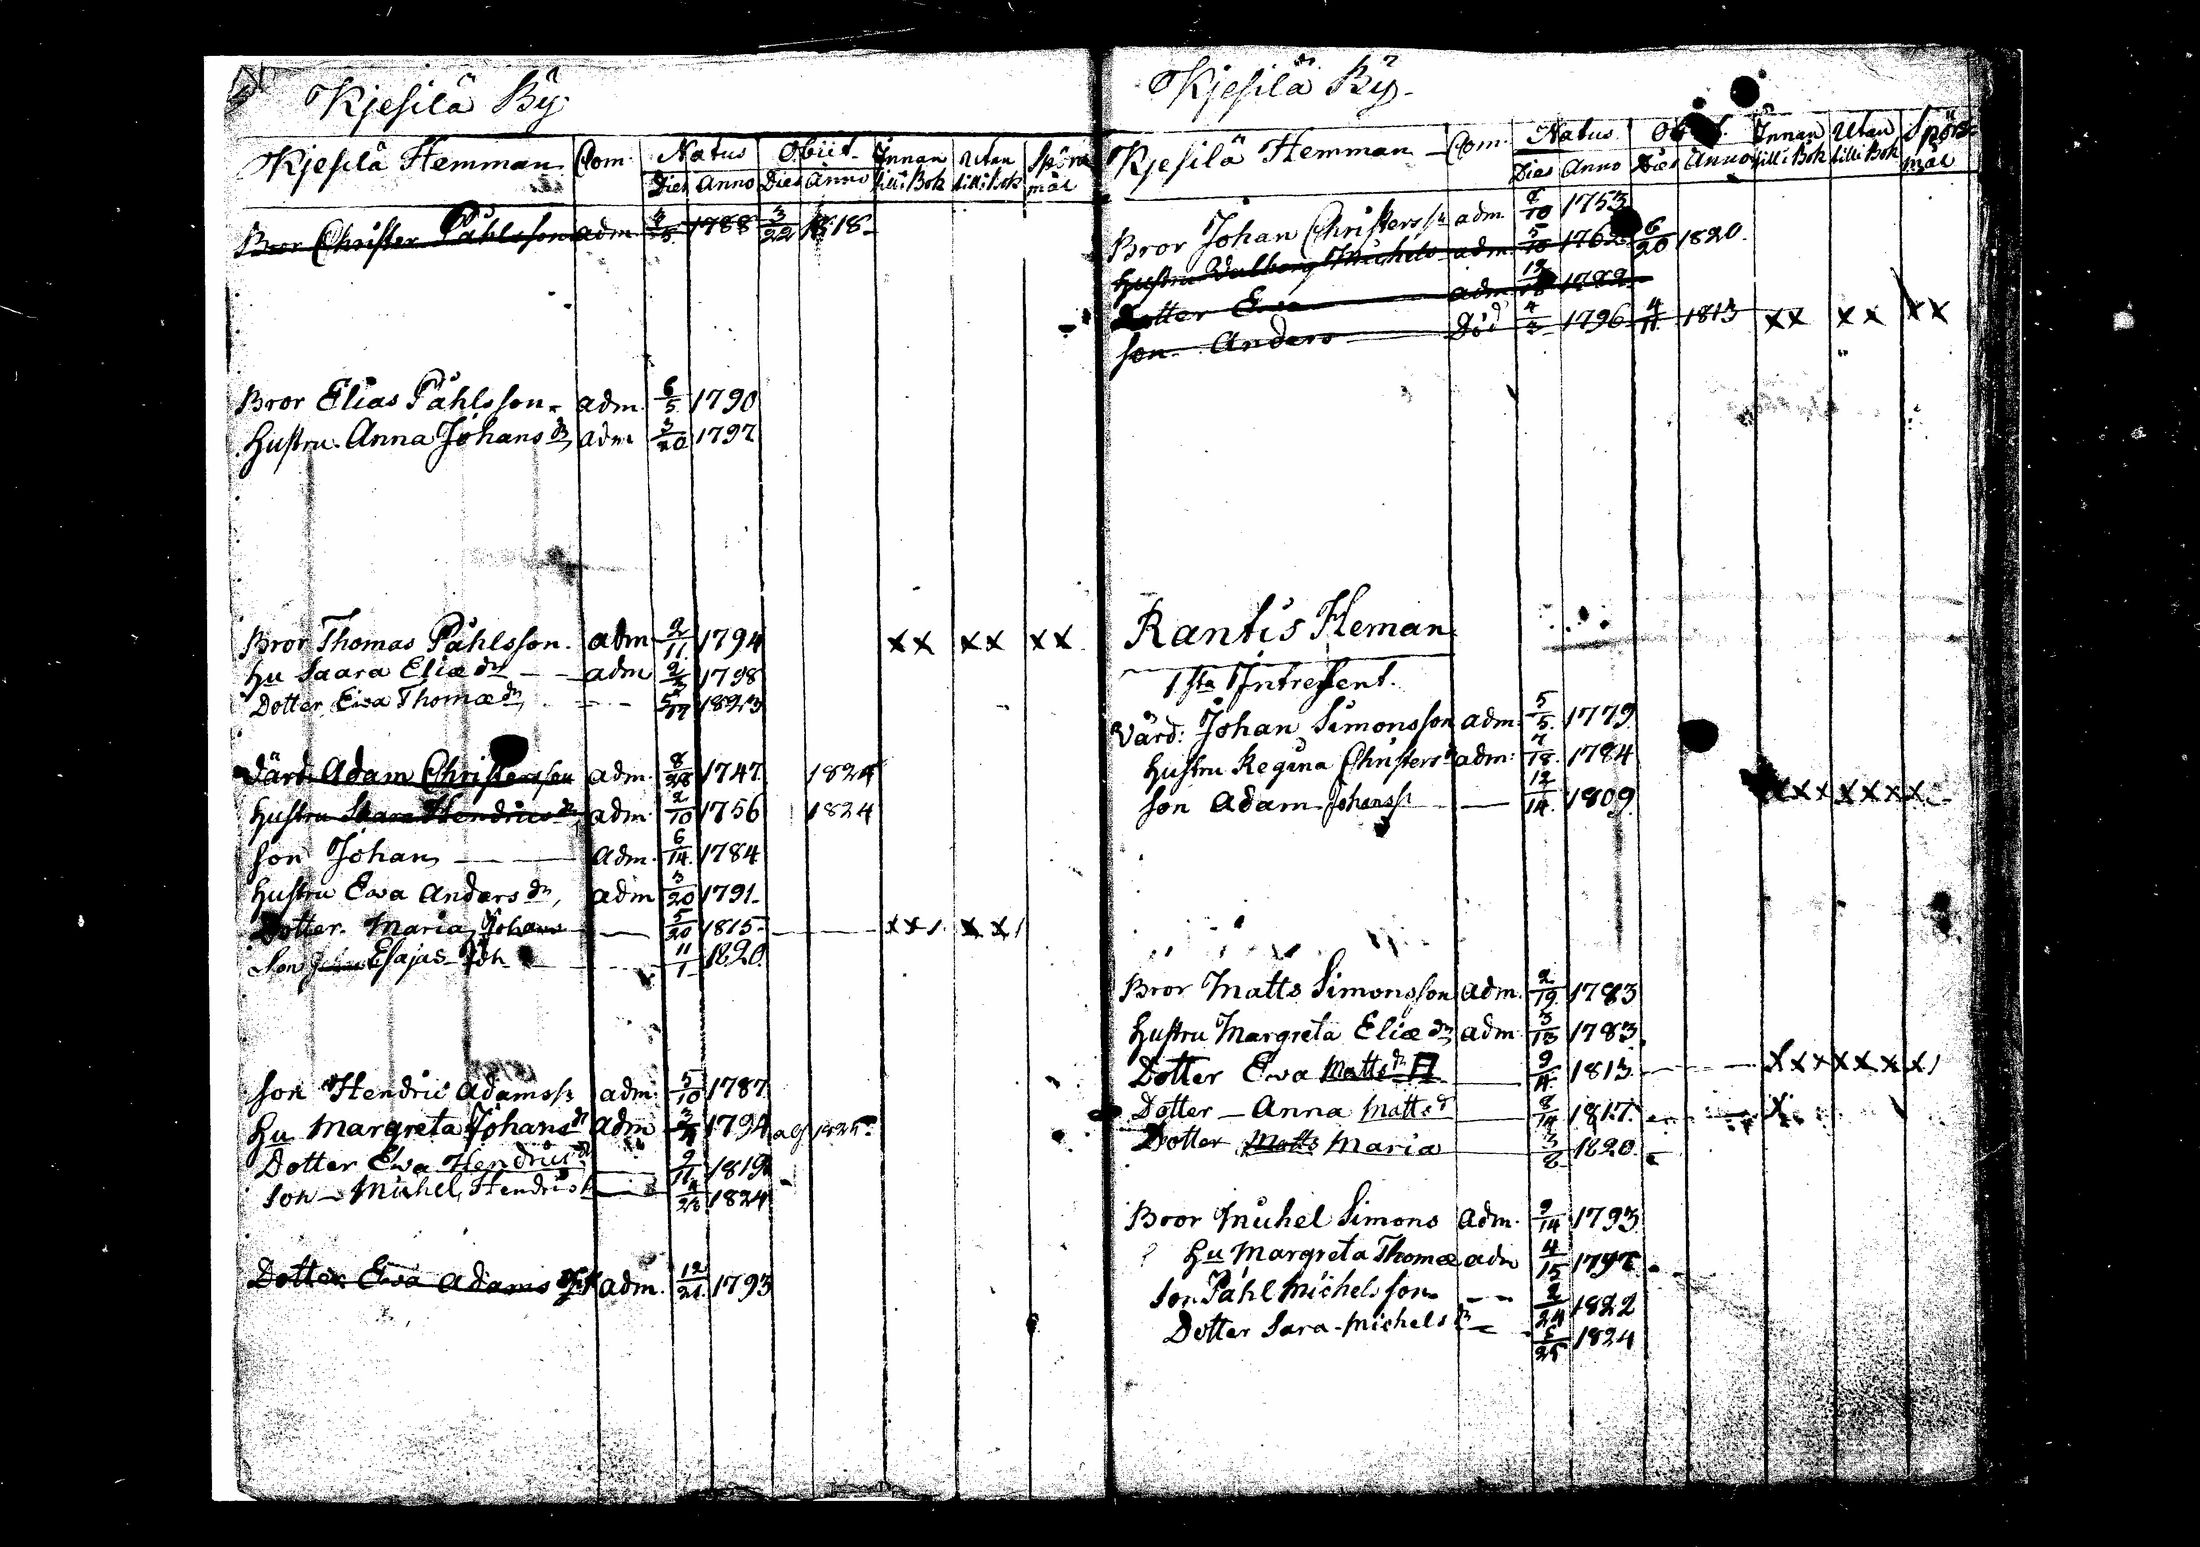 Kjesilä By
Kjesilä Hemman Com. Natus Obiit Innan till Bok Utan till Bok Spörsmål
Dies Anno Dies Anno
Bror Christer Påhlsson adm 1788 3/22 1818
Bror Elias Påhlsson adm. 6/5 1790
Hustru Anna Johans dr adm 3/20 1797
Bror Thomas Påhlsson. adm 2/11 1794 xx xx xx
Hu Saara Eliæ dr adm 1798
Dotter Ewa Thomæ dr 1823
Värd Adam Christersson adm. 8/28 1747 1824
Hustru Saara Hendrics dr adm. 2/10 1756 1824
Son Johan adm. 6/14 1784
Hustru Ewa Anders dr, adm 3/20 1791
Dotter Maria Johans 5/20 1815 xx/ xx/
Son Esajas Joh 11/1 1820
Son Hendric Adamss: adm. 5/10 1787
Hu Margreta Johans dr adm 1794
Dotter Ewa Hendrics dr 9/11 1819
Son Michel Hendrics 1824
Dotter Ewa Adams adm. 12/21 1793
Kjesilä By
Kjesilä Hemman Com. Natus Innan till Bok Utan till Bok Spörsmål
Dies Anno Dies Anno
Bror Johan Christerss: adm 1753
Hustru Walborg Michels adm. 5/10 1762 6/20 1820
Dotter Ewa adm 1782
Son Anders Död 4/3 1796 4/11 1813 xx xx xx
Rantis Heman
1sta Intressent.
Värd: Johan Simonsson adm. 5/5 1779
Hustru Regina Christers dr adm: 7/18 1784
Son Adam Johanss: 12/14 1809 xxx xxx x
Bror Matts Simonsson adm. 2/19 1783
Hustru Margreta Eliæ dr adm. 3/13 1783
Dotter Ewa Matts dr 1813 xxx xxx x/
Dotter Anna Matts d 8/14 1817 x
Dotter Matts Maria 1820
Bror Michel Simons adm. 9/14 1793
Hu Margreta Thomæ adm 4/15 1797
Son Påhl Michelsson 2/24 1822
Dotter Sara Michels dr 1824